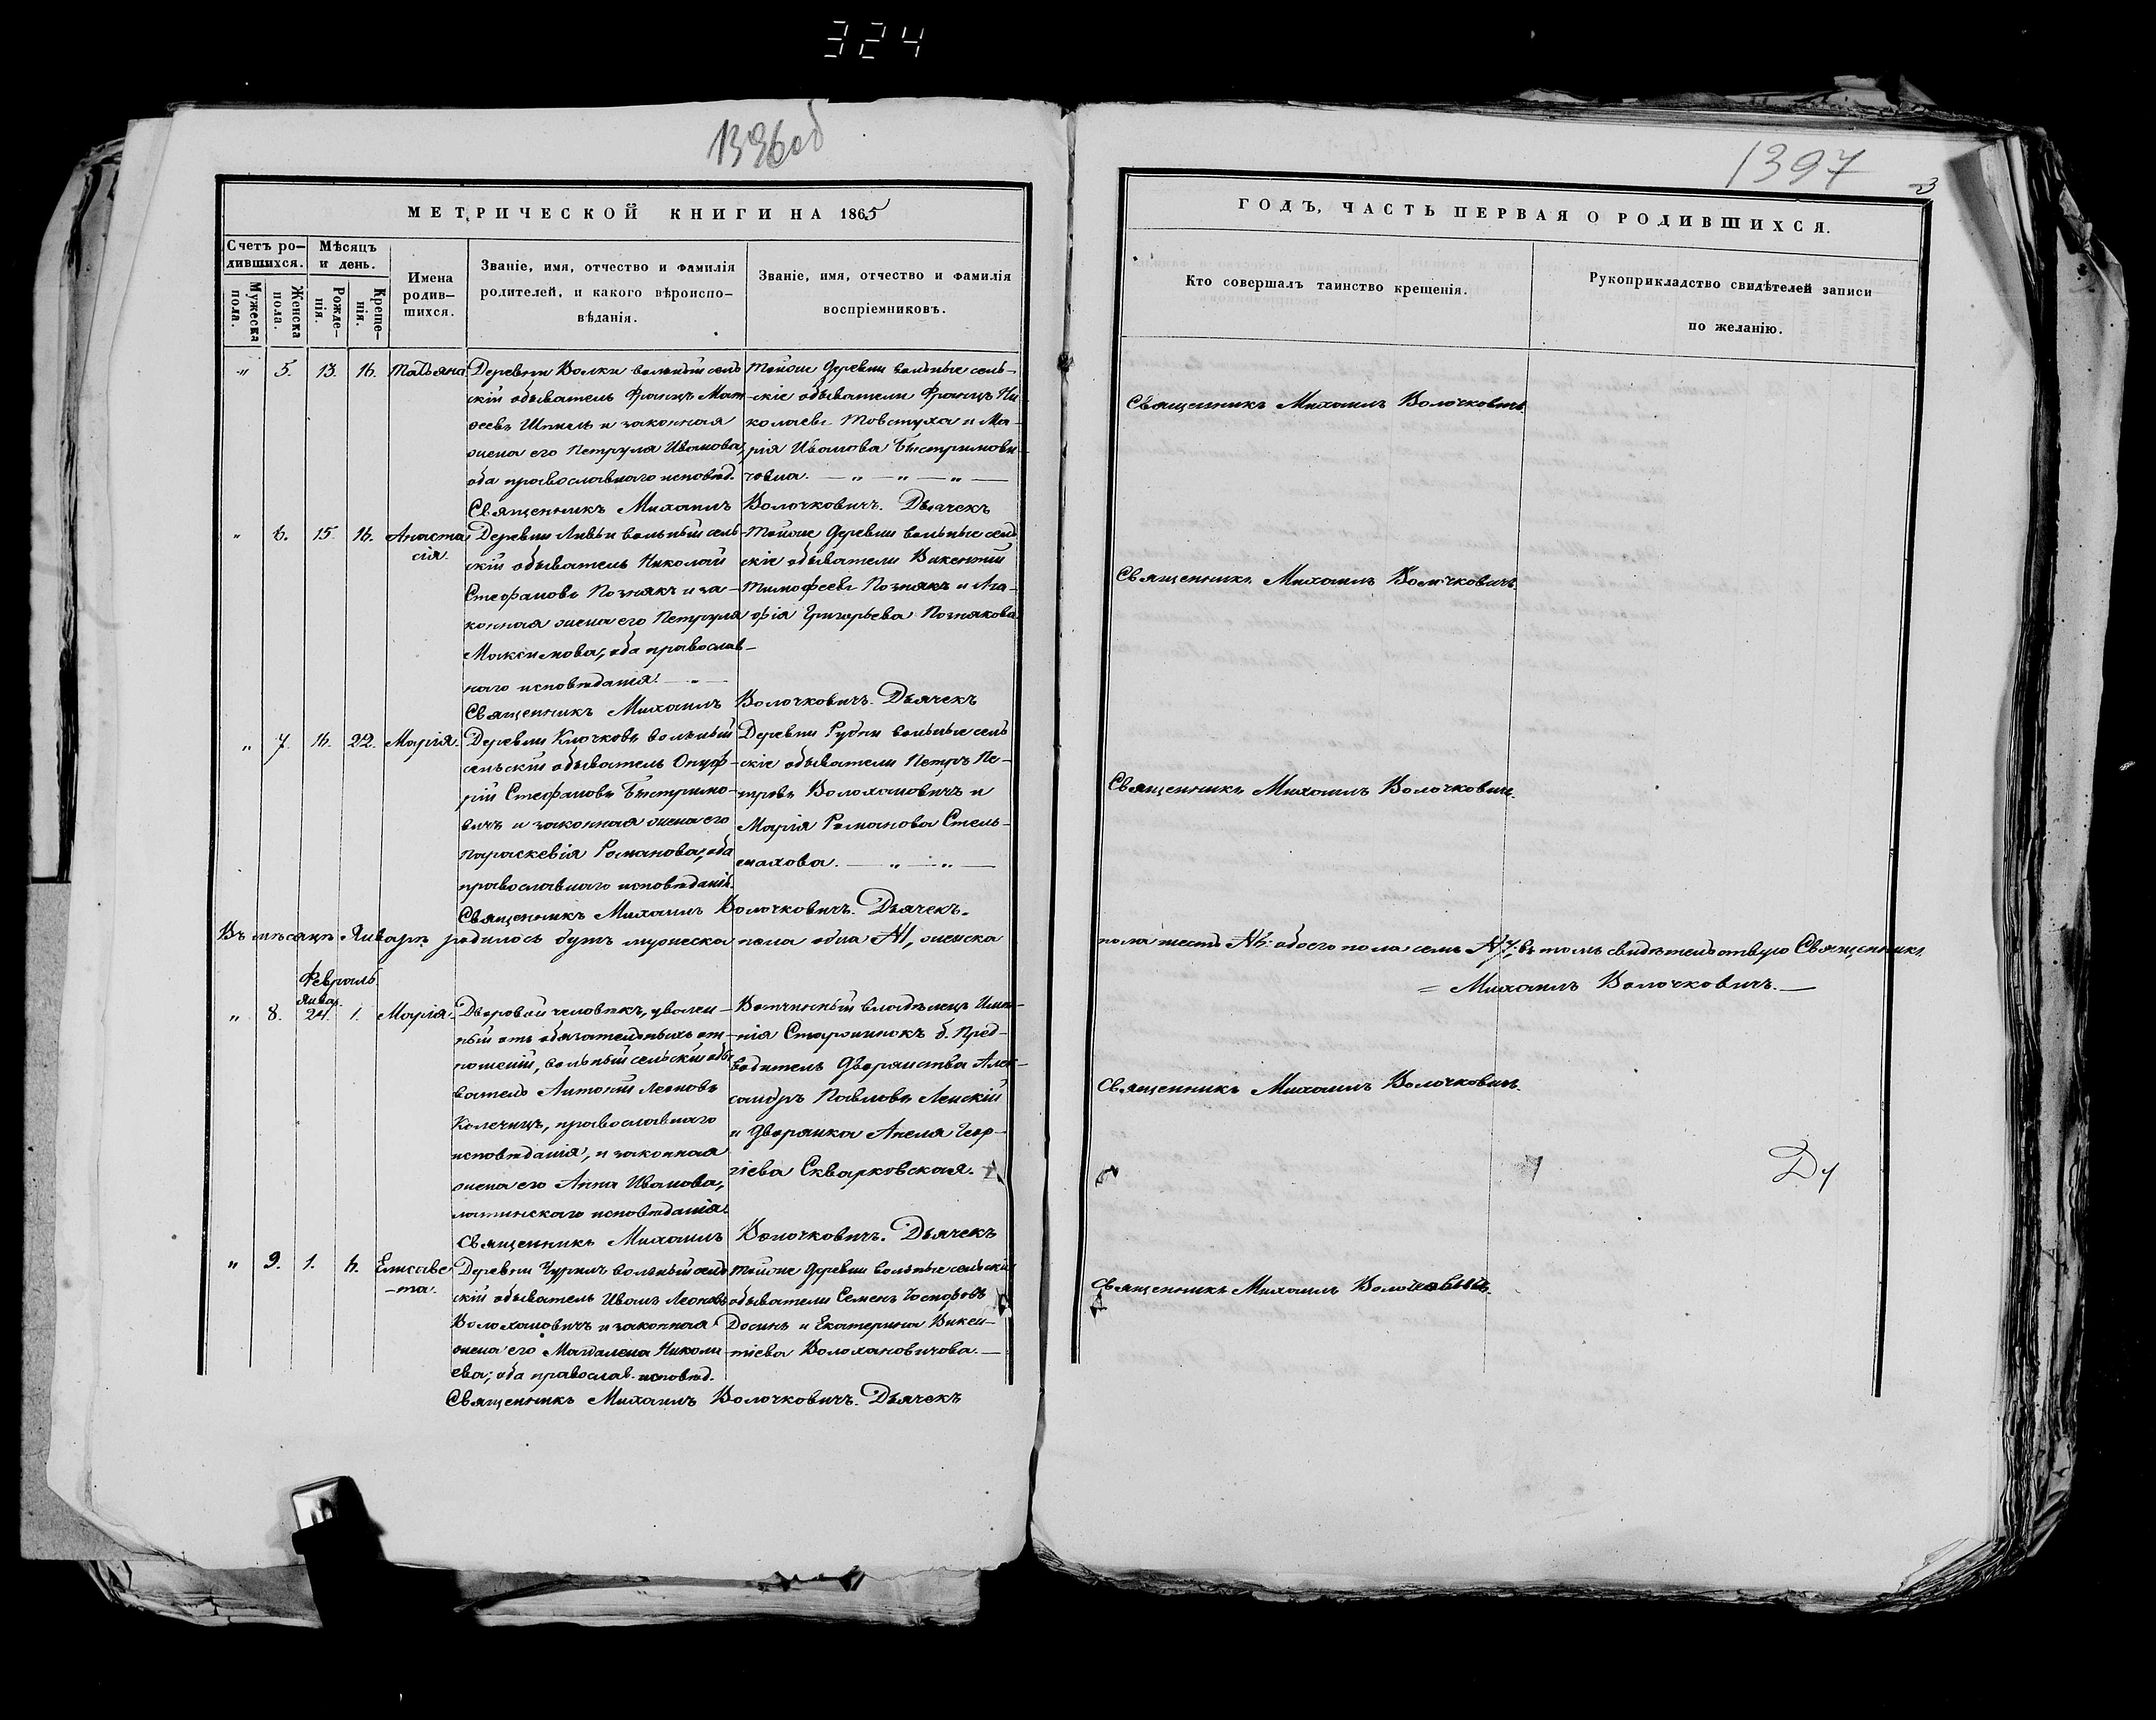 324
1396об
1397
3
МЕТРИЧЕСКОЙ КНИГИ НА 1865
ГОДЪ, ЧАСТЬ ПЕРВАЯ О РОДИВШИХСЯ.
Счетъ ро-
дившихся.
Мужеска
пола.
Женска
пола.
Мѣсяцъ
и день.
Рожде-
нія.
Креще-
нія.
Имена
родив-
шихся.
Званіе, имя, отчество и фамилія
родителей, и какого вѣроиспо-
вѣданія.
Званіе, имя, отчество и фамилія
воспріемниковъ.
Кто совершалъ таинство крещенія.
Рукоприкладство свидѣтелей записи
по желанію.
" 5. 13. 16. Татьяна
Деревни Волки вольный сель
скій обыватель Францъ Мат
ѳеевъ Шпилъ и законная
жена его Петруля Иванова,
оба православнаго исповѣд.
Тойже деревни вольные сель-
-скіе обыватели Францъ Ни
колаевъ Товстуха и Ма-
рія Иванова Быстримови
чова. — " — " — " —
Священникъ Михаилъ Волочковичъ
Священникъ Михаилъ Волочковичъ. Дьячекъ
" 6. 15. 16. Анаста
сія.
Деревни Ливы вольный сель-
скій обыватель Николай
Стефановъ Познякъ и за-
конная жена его Петруля
Максимова, оба православ-
наго исповѣданія. — " —
Тойже деревни вольные сель
скіе обыватели Викентій
Тимофеевъ Познякъ и Ага-
фія Григорьева Познякова.
Священникъ Михаилъ Волочковичъ.
Священникъ Михаилъ Волочковичъ. Дьячекъ
" 7. 16. 22. Марія.
Деревни Клочковъ вольный
сельскій обыватель Онуф-
рій Стефановъ Быстримо-
вичъ и законная жена его
Параскевія Романова, оба
православнаго исповѣданія.
Деревни Рудни вольные сель
скіе обыватели Петръ Пе-
тровъ Волохановичъ и
Марія Романова Стель-
махова. — " — " —
Священникъ Михаилъ Волочковичъ.
Священникъ Михаилъ Волочковичъ. Дьячекъ.
Въ мѣсяцѣ Январѣ родилось дѣтъ мужеска пола одна №1, женска
пола шесть №6: обоего пола семь №7; въ томъ свидѣтельствую Священникъ
= Михаилъ Волочковичъ. —
Февраль.
Янва.
" 8. 24. 1. Марія.
Дворовой человѣкъ, уволен-
ный отъ обязательныхъ от-
ношеній, вольный сельскій обы
ватель Антоній Леоновъ
Колечицъ, православнаго
исповѣданія, и законная
жена его Анна Иванова,
латинскаго исповѣданія.
Вотчинный владѣлецъ Имѣ-
нія Старчинокъ б. Пред-
водитель дворянства Алек-
сандръ Павловъ Ленскій
и дворянка Анеля Геор-
гіева Скварковская.
Священникъ Михаилъ Волочковичъ.
Священникъ Михаилъ Волочковичъ. Дьячекъ
" 9. 1. 6. Елисаве
-та.
Деревни Чурилъ вольный сель
скій обыватель Иванъ Леоновъ
Волохановичъ и законная
жена его Магдалена Никола
ева; оба православ. исповѣд.
Тойже деревни вольные сельскіе
обыватели Семенъ
Досинъ и Екатерина Викен-
тіева Волохановичова. —
Священникъ Михаилъ Волочковичъ.
Священникъ Михаилъ Волочковичъ. Дьячекъ